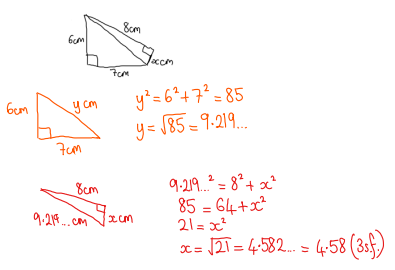 8cm
6cm
xcm
7cm
6cm
ycm
7cm
y² = 6² + 7² = 85
y = √85 = 9.219...
8cm
9.219... cm
xcm
9.219...² = 8² + x²
85 = 64 + x²
21 = x²
x = √21 = 4.582... = 4.58 (3sf.)